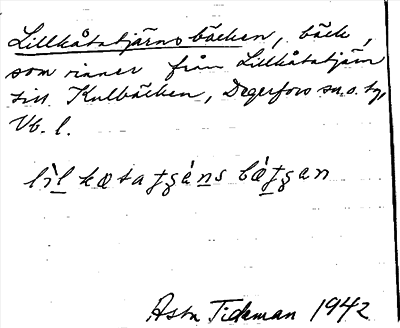 Lillkåtatjärnsbäcken, bäck,
som rinner från Lillkåtatjärn
till Kulbäcken, Degerfors sn. o. tg,
Vb. l.
Asta Tideman 1942